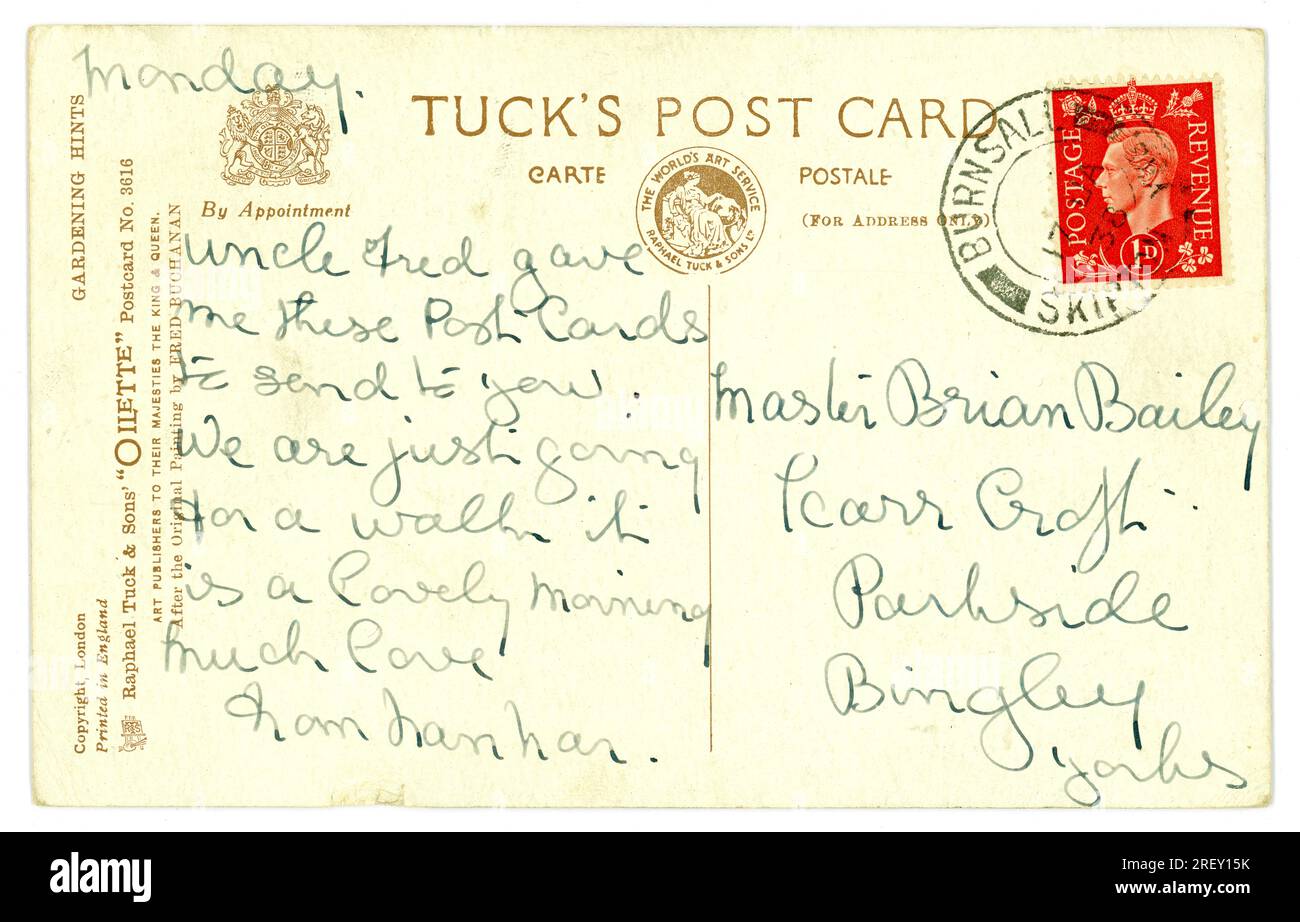 Monday.
TUCK'S POST CARD
CARTE POSTALE
(FOR ADDRESS ONLY)
By Appointment
THE WORLD'S ART SERVICE
RAPHAEL TUCK & SONS LD
GARDENING HINTS
Raphael Tuck & Sons' "OILETTE" Postcard No. 3616
ART PUBLISHERS TO THEIR MAJESTIES THE KING & QUEEN.
After the Original Painting by FRED BUCHANAN
Copyright, London
Printed in England
Uncle Fred gave
me these Post Cards
to send to you.
We are just going
for a walk it
is a lovely morning
much love
from Nan Nan.
BURNSALL
SKIP
POSTAGE
REVENUE
1D
Master Brian Bailey
Croft
Parkside
Bingley
Yorks
alamy
Image ID: 2REY15K
www.alamy.com